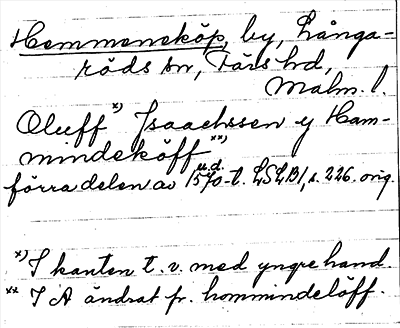 Hemmeneköp, by, Långa-
röds sn, Färs hd,
Malm. l.
Oluff x) Jsaachssen y Ham-
mindeköff xx)
u.d.
förra delen av 1570-t. LSLB1, s. 226. orig.
x) I kanten t. v. med yngre hand.
xx I A ändrat fr. hommindelöff.